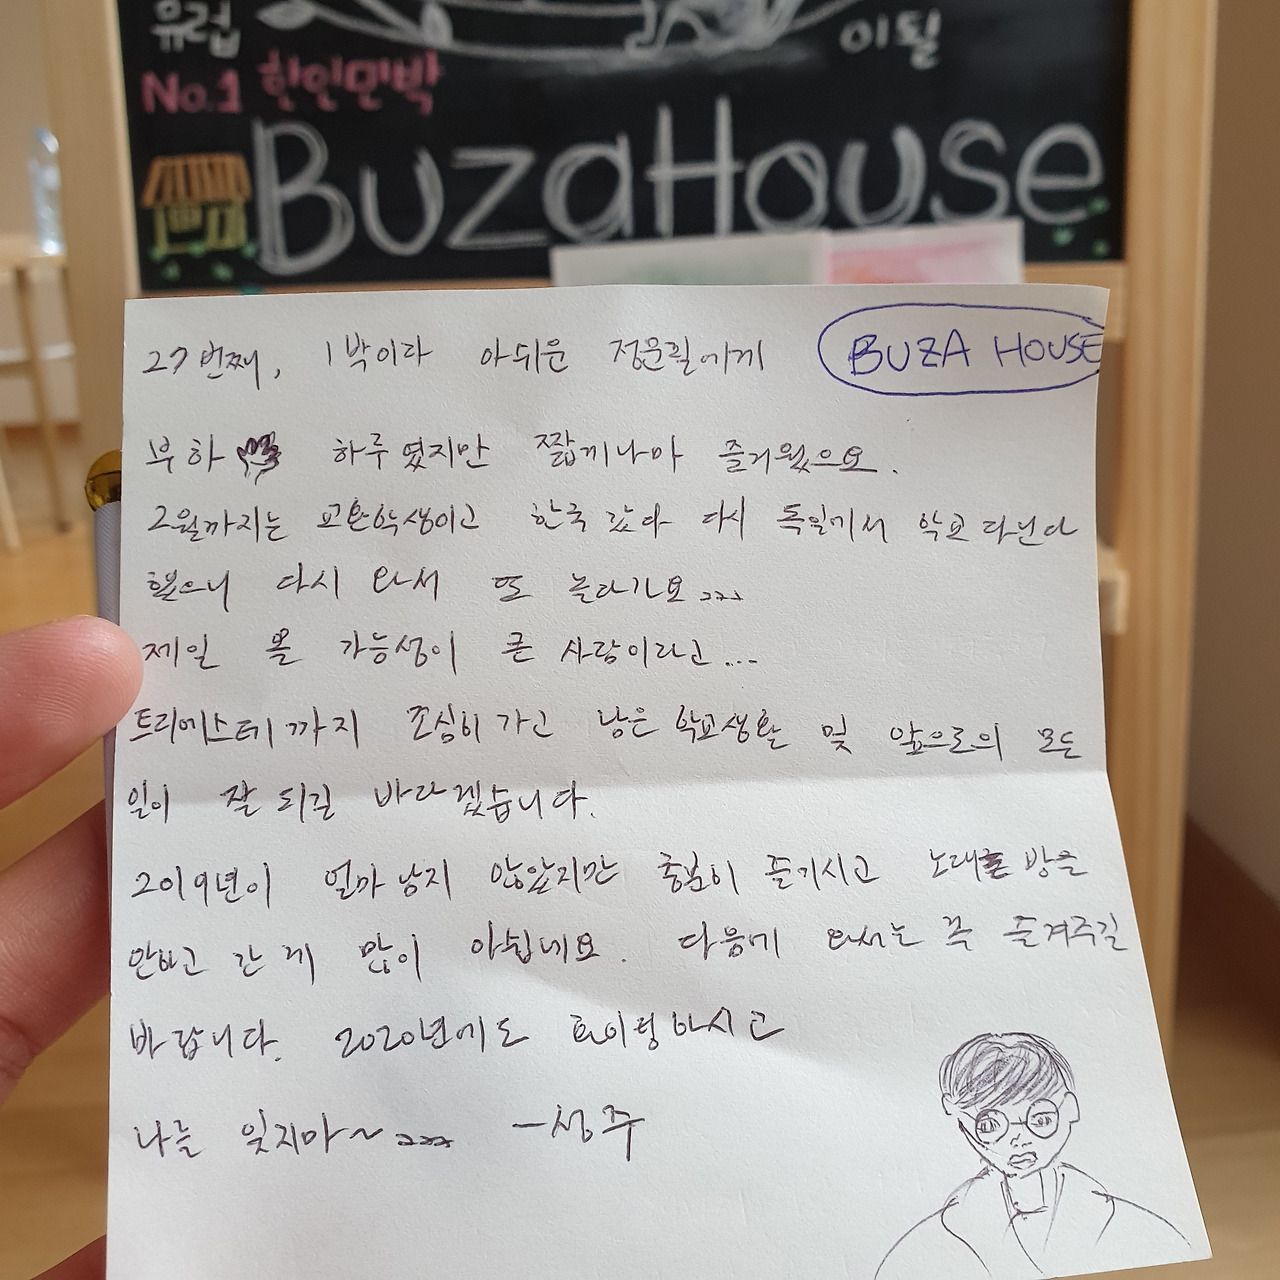 유럽
이될
No.1 한인민박
BuzaHouse
27번째, 1박이라 아쉬운 정문필에게
BUZA HOUSE
부하 하루였지만 짧게나마 즐거웠으요.
2월까지는 교환학생이고 한국 갔다 다시 독일에서 학교 다닌다
했으니 다시 와서 또 놀다가요 ㅋㅋㅋ
제일 볼 가능성이 큰 사람이라고...
트리에스테까지 조심히 가고 남은 학교생활 및 앞으로의 모든
일이 잘 되길 바라겠습니다.
2019년이 얼마 남지 않았지만 충분히 즐기시고 노래방을
안하고 간 게 많이 아쉽네요. 다음에 와서는 꼭 즐겨주길
바랍니다. 2020년에도 화이팅하시고
나를 잊지마~ ㅋㅋㅋ -성주